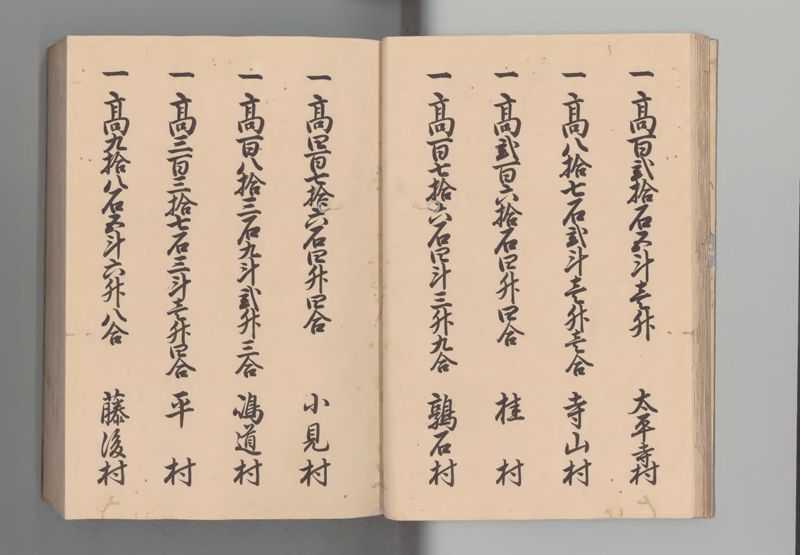 一 高百弐拾石五斗壱升 太平寺村
一 高八拾七石弐斗壱升壱合 寺山村
一 高弐百六拾石四升四合 桂村
一 高百七拾六石四斗三升九合 鶉石村
一 高四百七拾六石四升四合 小見村
一 高百八拾三石九斗弐升三合 道村
一 高三百三拾七石三斗壱升四合 平村
一 高九拾八石五斗六升八合 藤後村